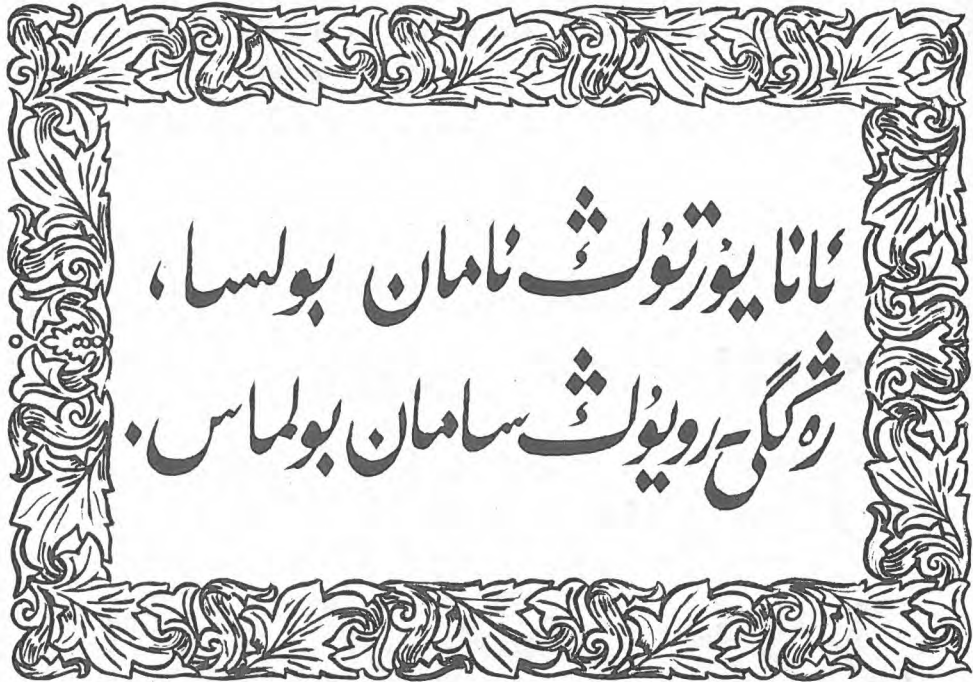 ئانا يۇرتۇڭ ئامان بولسا،
رەڭگى-رويۇڭ سامان بولماس.